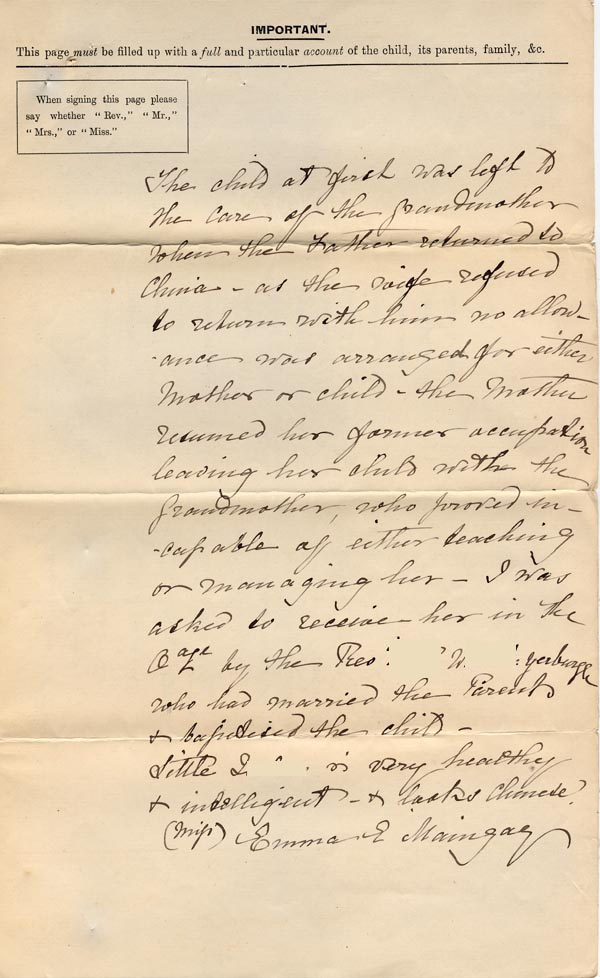 IMPORTANT.
This page must be filled up with a full and particular account of the child, its parents, family, &c.
When signing this page please
say whether "Rev.," "Mr.,"
"Mrs.," or "Miss."
The child at first was left to
the care of the grandmother
when the Father returned to
China - as the wife refused
to return with him no allow-
-ance was arranged for either
Mother or child - the Mother
resumed her former occupation
leaving her child with the
grandmother, who proved in-
-capable of either teaching
or managing her - I was
asked to receive her in the
by the Rev. W. yerburgh
who had married the Parents
& baptised the child -
Little I is very healthy
& intelligent - & looks Chinese.
(Miss) Emma E Maingay